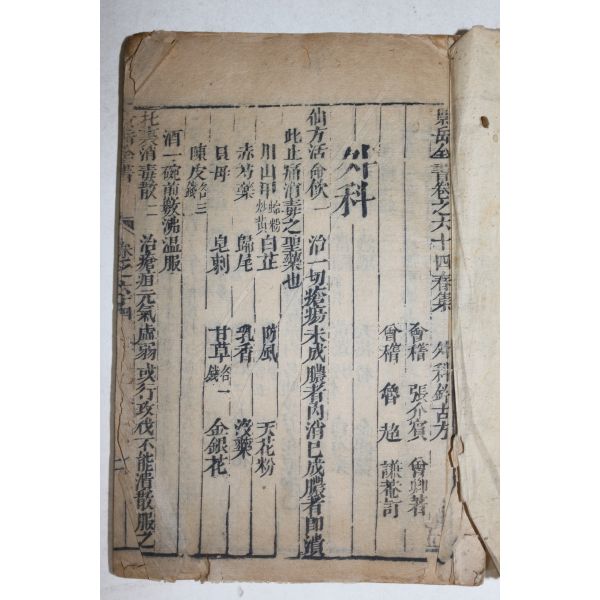 景岳全書卷之六十四春集 外科鈐古方
會稽 張介賓 會卿著
會稽 魯超 謙菴訂
外科
仙方活命飲一 治一切瘡瘍未成膿者內消已成膿者即潰
此止痛消毒之聖藥也
川山甲蛤粉炒黄 白芷 防風 天花粉
赤芍藥 歸尾 乳香 沒藥
貝母 皂刺 甘草各一錢 金銀花
陳皮各三錢
酒一碗煎數沸溫服
托裏消毒散二 治瘡疽元氣虛弱或行攻伐不能潰散服之
岳全書 卷之六十四